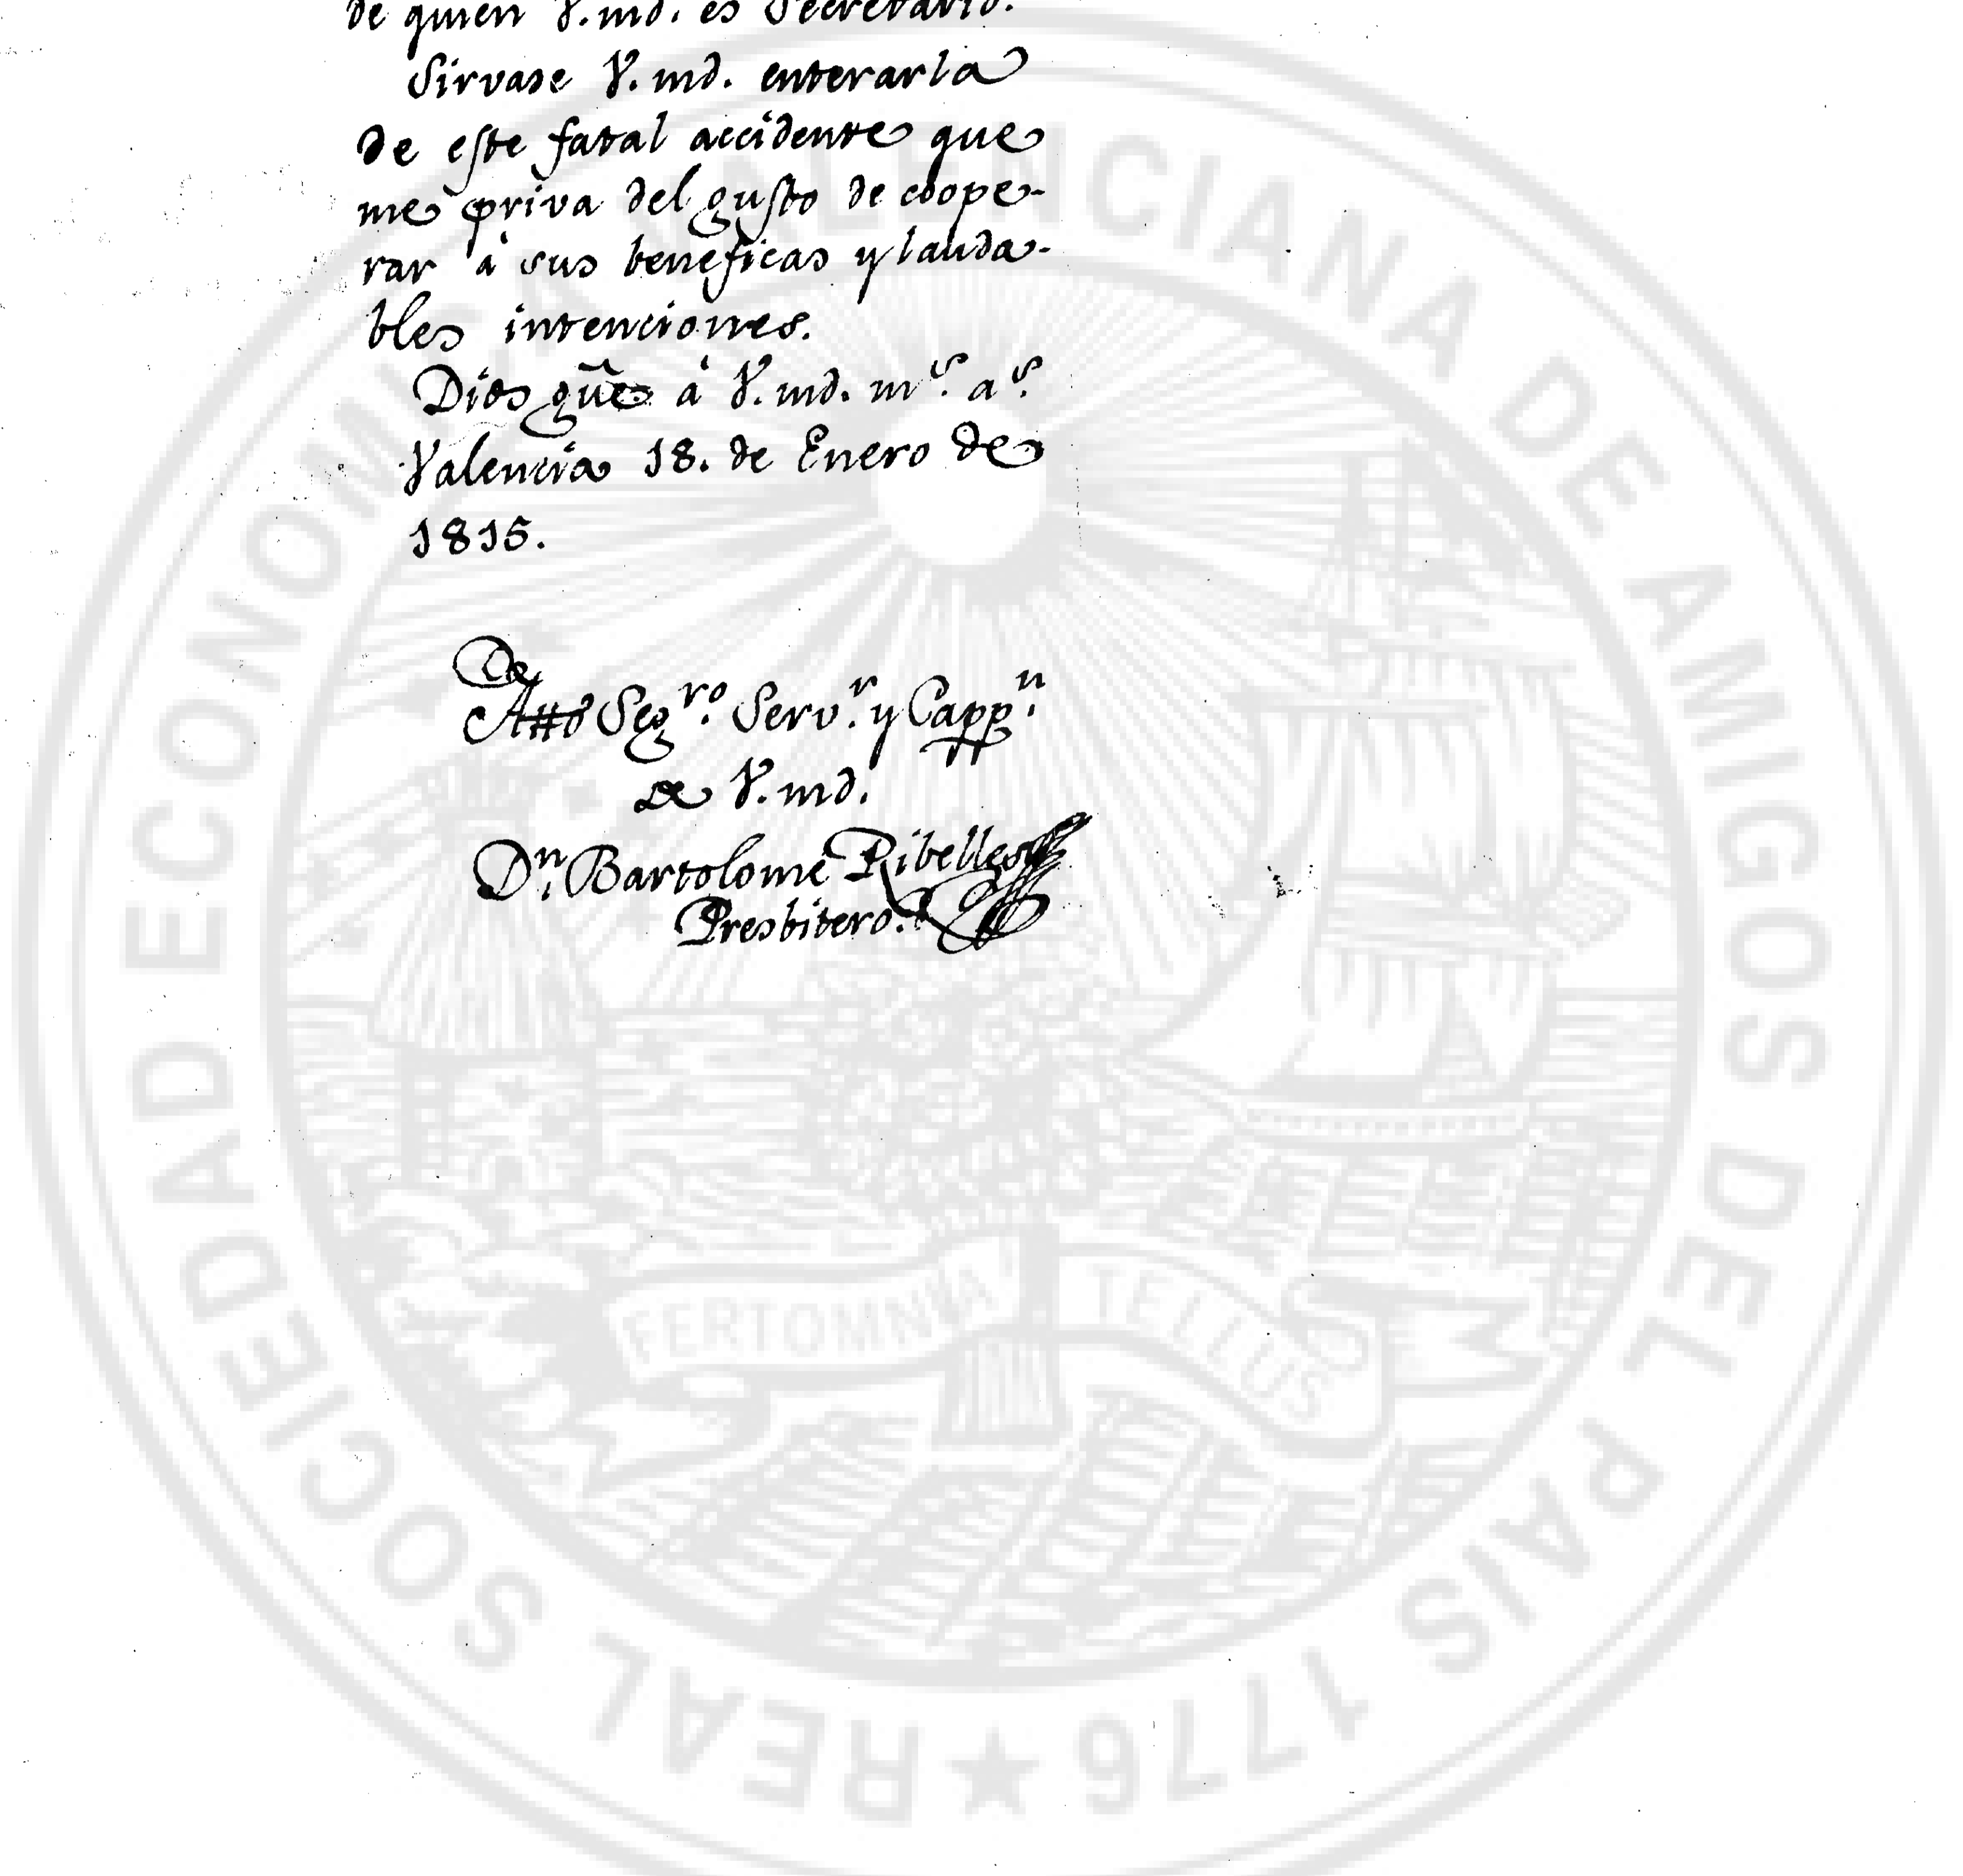 de quien V.md. es Secretario.
Sirvase V.md. enterarla
de este fatal accidente que
me priva del gusto de coope-
rar à sus beneficas y lauda-
bles intenciones.
Dios gũe à V.md. m.s a.s
Valencia 18. de Enero de
1815.
De
Atto Seg.ro Serv.r y Capp.n
de V.md.
D.n Bartolome Ribelles
Presbitero.
REAL SOCIEDAD ECONOMICA VALENCIANA DE AMIGOS DEL PAIS 1776 ★
FERT OMNIA TELLUS